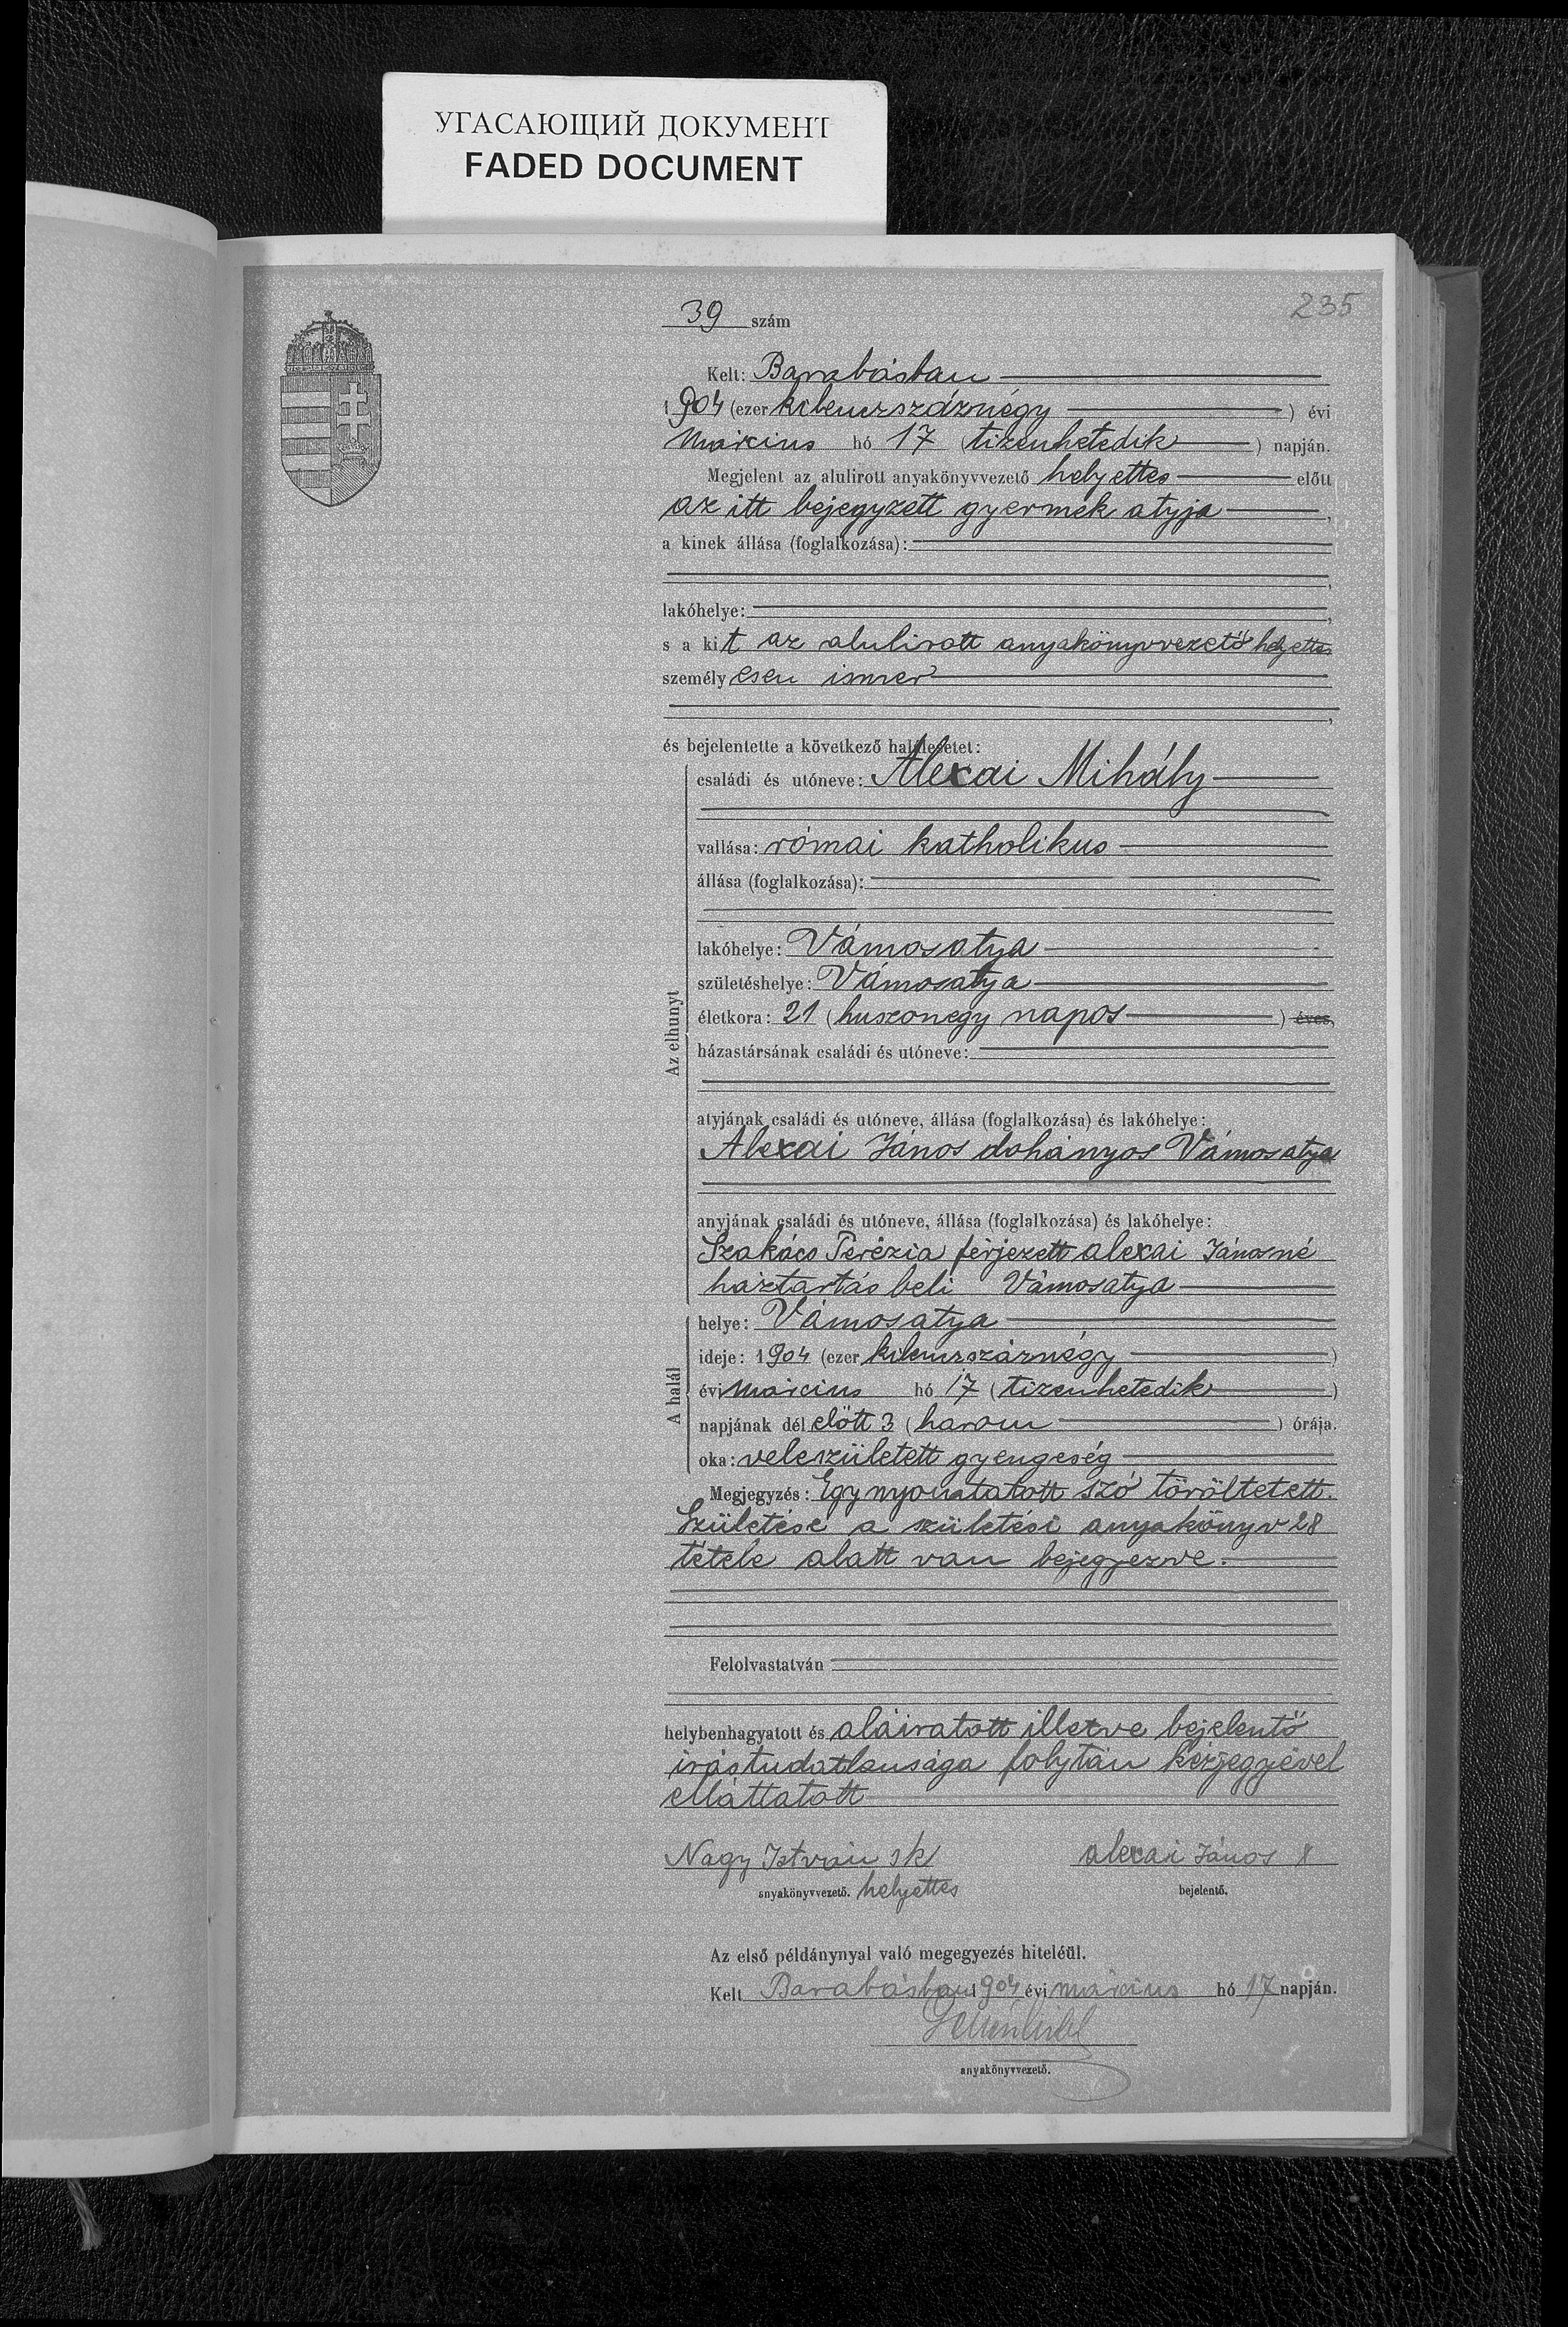 УГАСАЮЩИЙ ДОКУМЕНТ
FADED DOCUMENT
235
39 szám
Kelt: Barabásban
1904 (ezer kilenczszáznégy ) évi
március hó 17 (tizenhetedik ) napján.
Megjelent az alulirott anyakönyvvezető helyettes előtt
az itt bejegyzett gyermek atyja ,
a kinek állása (foglalkozása):
,
lakóhelye: ,
s a kit az alulirott anyakönyvvezető helyettes
személyesen ismer
,
és bejelentette a következő halálesetet:
Az elhunyt
családi és utóneve: Alexai Mihály
vallása: római katholikus
állása (foglalkozása):
lakóhelye: Vámosatya
születéshelye: Vámosatya
életkora: 21 (huszonegy napos ) éves,
házastársának családi és utóneve:
atyjának családi és utóneve, állása (foglalkozása) és lakóhelye:
Alexai János dohányos Vámosatya
anyjának családi és utóneve, állása (foglalkozása) és lakóhelye:
Szakács Terézia férjezett alexai Jánosné
háztartás beli Vámosatya
A halál
helye: Vámosatya
ideje: 1904 (ezer kilenczszáznégy )
évi március hó 17 (tizenhetedik )
napjának dél előtt 3 (harom ) órája.
oka: veleszületett gyengeség
Megjegyzés: Egy nyomtatott szó töröltetett.
Születése a születési anyakönyv 28
tétele alatt van bejegyezve.
Felolvastatván
helybenhagyatott és aláiratott illetve bejelentő
irástudatlansága folytán kézjegyével
elláttatott
Nagy István sk alexai János x
anyakönyvvezető. helyettes bejelentő.
Az első példánynyal való megegyezés hiteléül.
Kelt Barabásban 1904 évi március hó 17 napján.
anyakönyvvezető.